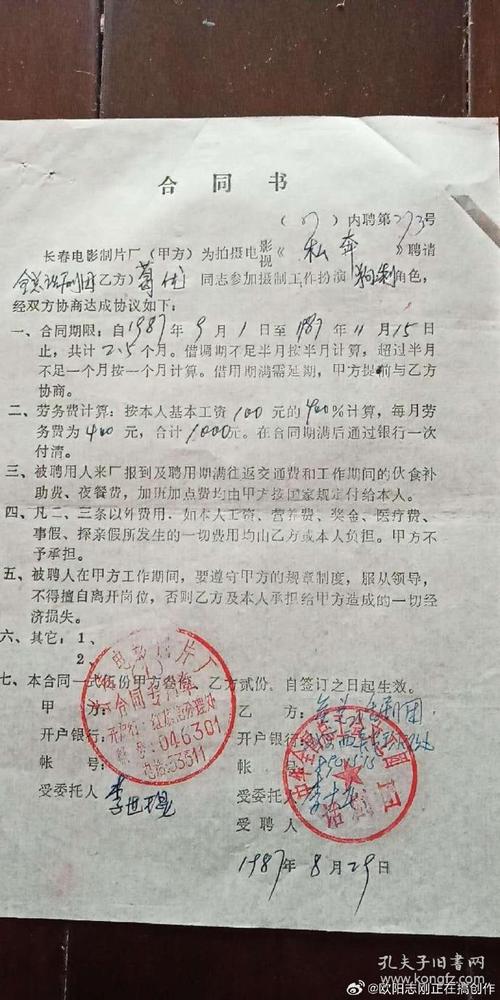 合同书
(87)内聘第273号
长春电影制片厂(甲方)为拍摄电影视《私奔》聘请
全总话剧团乙方)葛优同志参加摄制工作扮演角色,
经双方协商达成协议如下:
一、合同期限:自1987年9月1日至1987年11月15日
止,共计2.5个月。借调期不足半月按半月计算,超过半月
不足一个月按一个月计算。借用期满需延期,甲方提前与乙方
协商。
二、劳务费计算:按本人基本工资100元的400%计算,每月劳
务费为400元,合计1000元。在合同期满后通过银行一次
付清。
三、被聘用人来厂报到及聘用期满往返交通费和工作期间的伙食补
助费、夜餐费,加班加点费均由甲方按国家规定付给本人。
四、凡二、三条以外费用,如本人工资、营养费、奖金、医疗费、
事假、探亲假所发生的一切费用均由乙方或本人负担。甲方不
予承担。
五、被聘人在甲方工作期间,要遵守甲方的规章制度,服从领导,
不得擅自离开岗位,否则乙方及本人承担给甲方造成的一切经
济损失。
六、其它:1、
2、
七、本合同一式伍份甲方叁份,乙方贰份,自签订之日起生效。
甲方:
开户银行:
帐号:
受委托人
电影制片厂
合同专用章
046301
电话:53311
乙方:全总话剧团
开户银行:
帐号:
受委托人
受聘人
话剧团
1987年8月29日
孔夫子旧书网
kongfz.com
@欧阳志刚正在搞创作